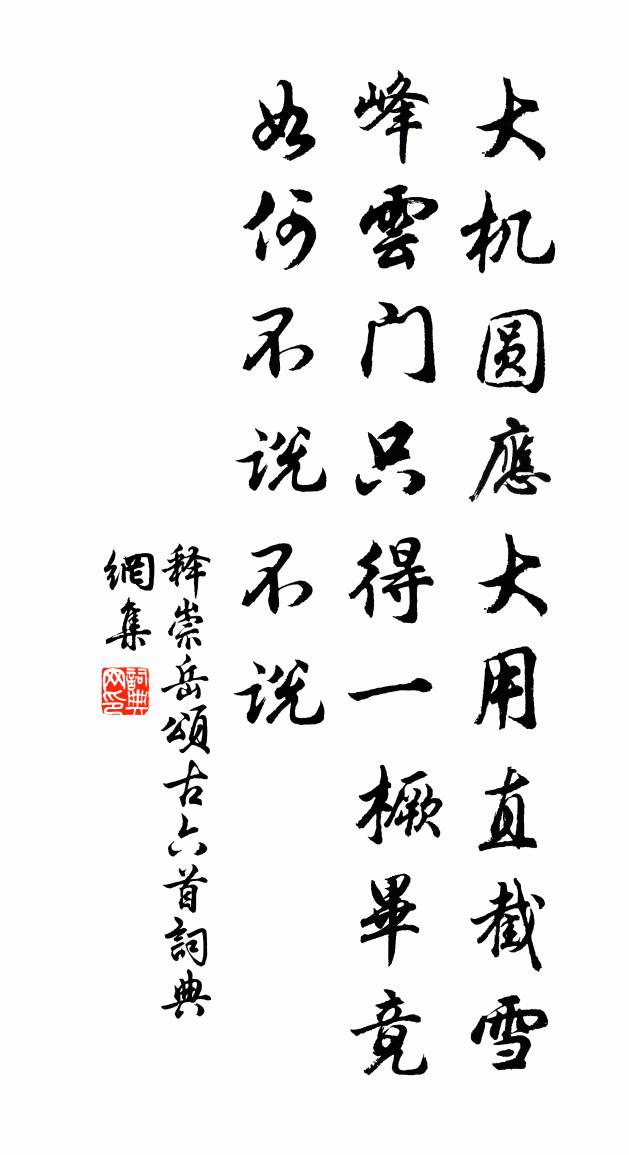 大机圆應大用直截雪
峰雲门只得一橛畢竟
如何不説不説
释崇岳頌古六首詞典
網集
詞典
网印